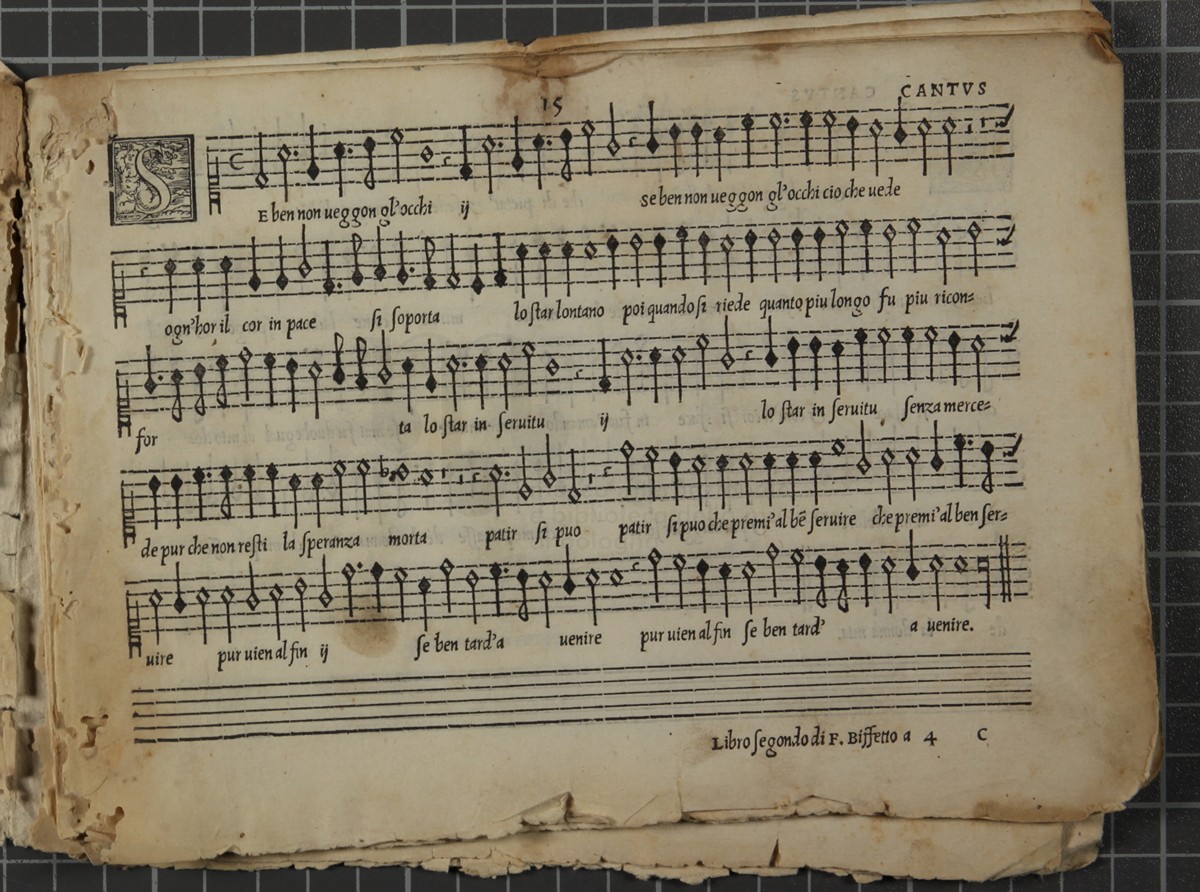 15 CANTVS
SE ben non ueggon gl'occhi ij se ben non ueggon gl'occhi cio che uede
ogn'hor il cor in pace si soporta lo star lontano poi quando si riede quanto piu longo fu piu ricon=
for ta lo star in seruitu ij lo star in seruitu senza merce=
de pur che non resti la speranza morta patir si puo patir si puo che premi'al bẽ seruire che premi'al ben ser=
uire pur uien al fin ij se ben tard'a uenire pur uien al fin se ben tard' a uenire.
Libro segondo di F. Biffetto a 4 C